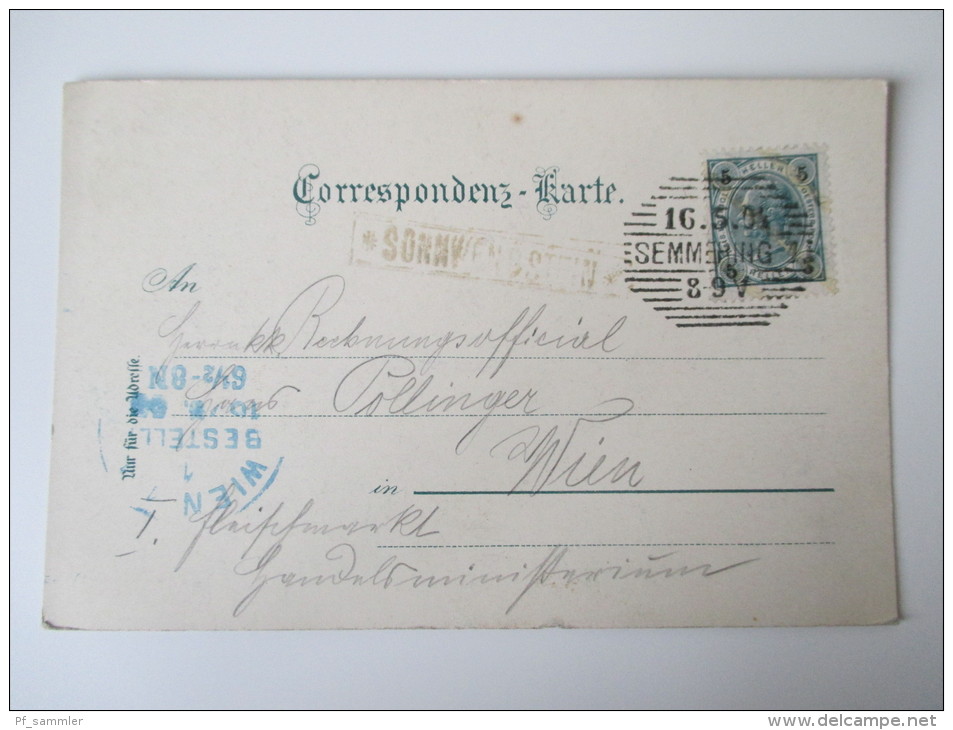 Correspondenz-Karte.
5 HELLER 5
16.5.04
SEMMERING
8-9V
5 HELLER 5
*SONNWENDSTEIN*
An
Herrn kk. Rechnungsofficial
Hans Pollinger
in Wien
I. Fleischmarkt
Handelsministerium
Nur für die Adresse.
WIEN
1
BESTELLT
6½-8N
Pf_sammler
www.delcampe.net